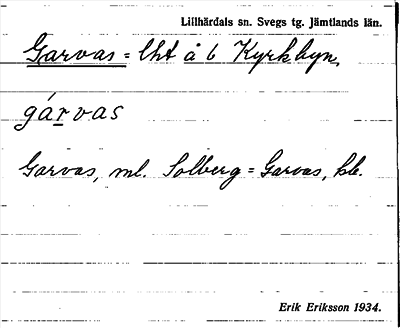 Lillhärdals sn. Svegs tg. Jämtlands län.
Garvas = lht å 6 Kyrkbyn,
gárvas
Garvas, ml. Solberg = Garvas, kb.
Erik Eriksson 1934.